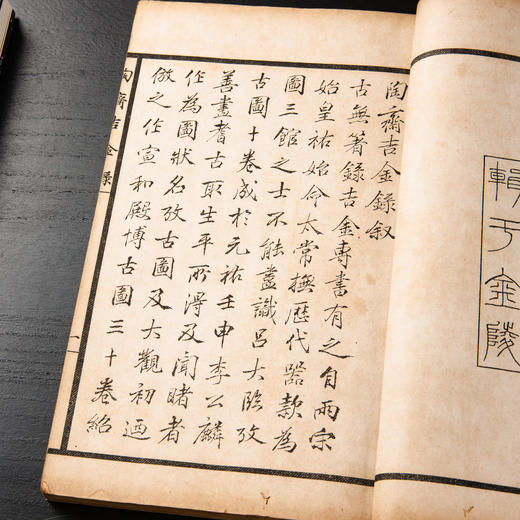 于金陵
陶齋吉金錄敘
古無著錄吉金專書有之自兩宗
始皇祐始命太常撫歷代器款為
圖三館之士不能盡識呂大臨攷
古圖十卷成於元祐壬申李公麟
善畫耆古取生平所得及聞睹者
作為圖狀名攷古圖及大觀初迺
倣之作宣和殿博古圖三十卷紹
陶齋吉金錄
一